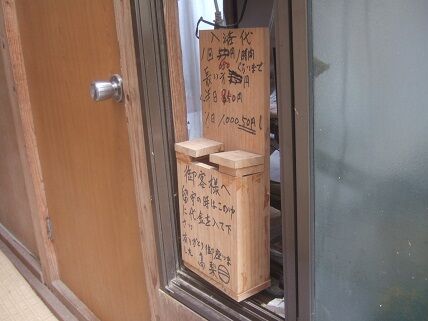 入湯代
1回 円 1時間
650 ぐらいまで
長い方 円
半日 850円
1日 1000.50円
御客様へ
留守の時はこの中
に代金を入て下
さい
有りがとう御座いま
した 高梨